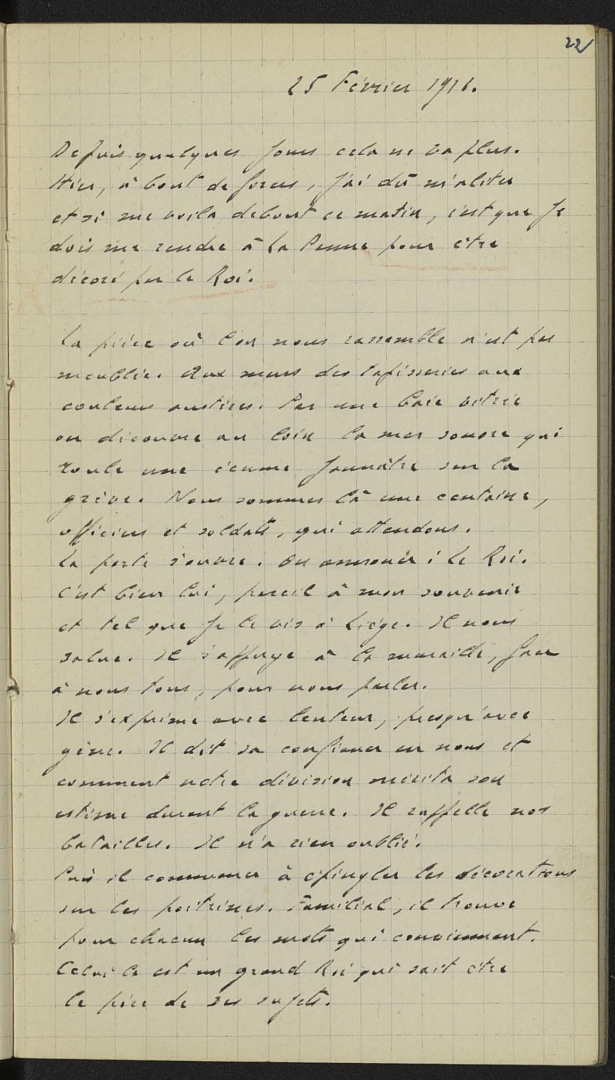 22
25 Février 1916.
Depuis quelques jours cela ne va plus.
Hier, à bout de forces, j'ai dû m'aliter
et si me voilà debout ce matin, c'est que je
dois me rendre à La Panne pour être
décoré par le Roi.
La pièce où l'on nous rassemble n'est pas
meublée. Aux murs des tapisseries aux
couleurs austères. Par une baie vitrée
on découvre au loin la mer sonore qui
roule une écume jaunâtre sur la
grève. Nous sommes là une centaine,
officiers et soldats, qui attendons.
La porte s'ouvre. On annonce : Le Roi.
C'est bien lui, pareil à mon souvenir
et tel que je le vis à Liège. Il nous
salue. Il s'appuye à la muraille, face
à nous tous, pour nous parler.
Il s'exprime avec lenteur, presqu'avec
gêne. Il dit sa confiance en nous et
comment notre division mérita son
estime durant la guerre. Il rappelle nos
batailles. Il n'a rien oublié.
Puis il commence à épingler les décorations
sur les poitrines. Familial, il trouve
pour chacun les mots qui conviennent.
Celui là est un grand Roi qui sait être
le père de ses sujets.